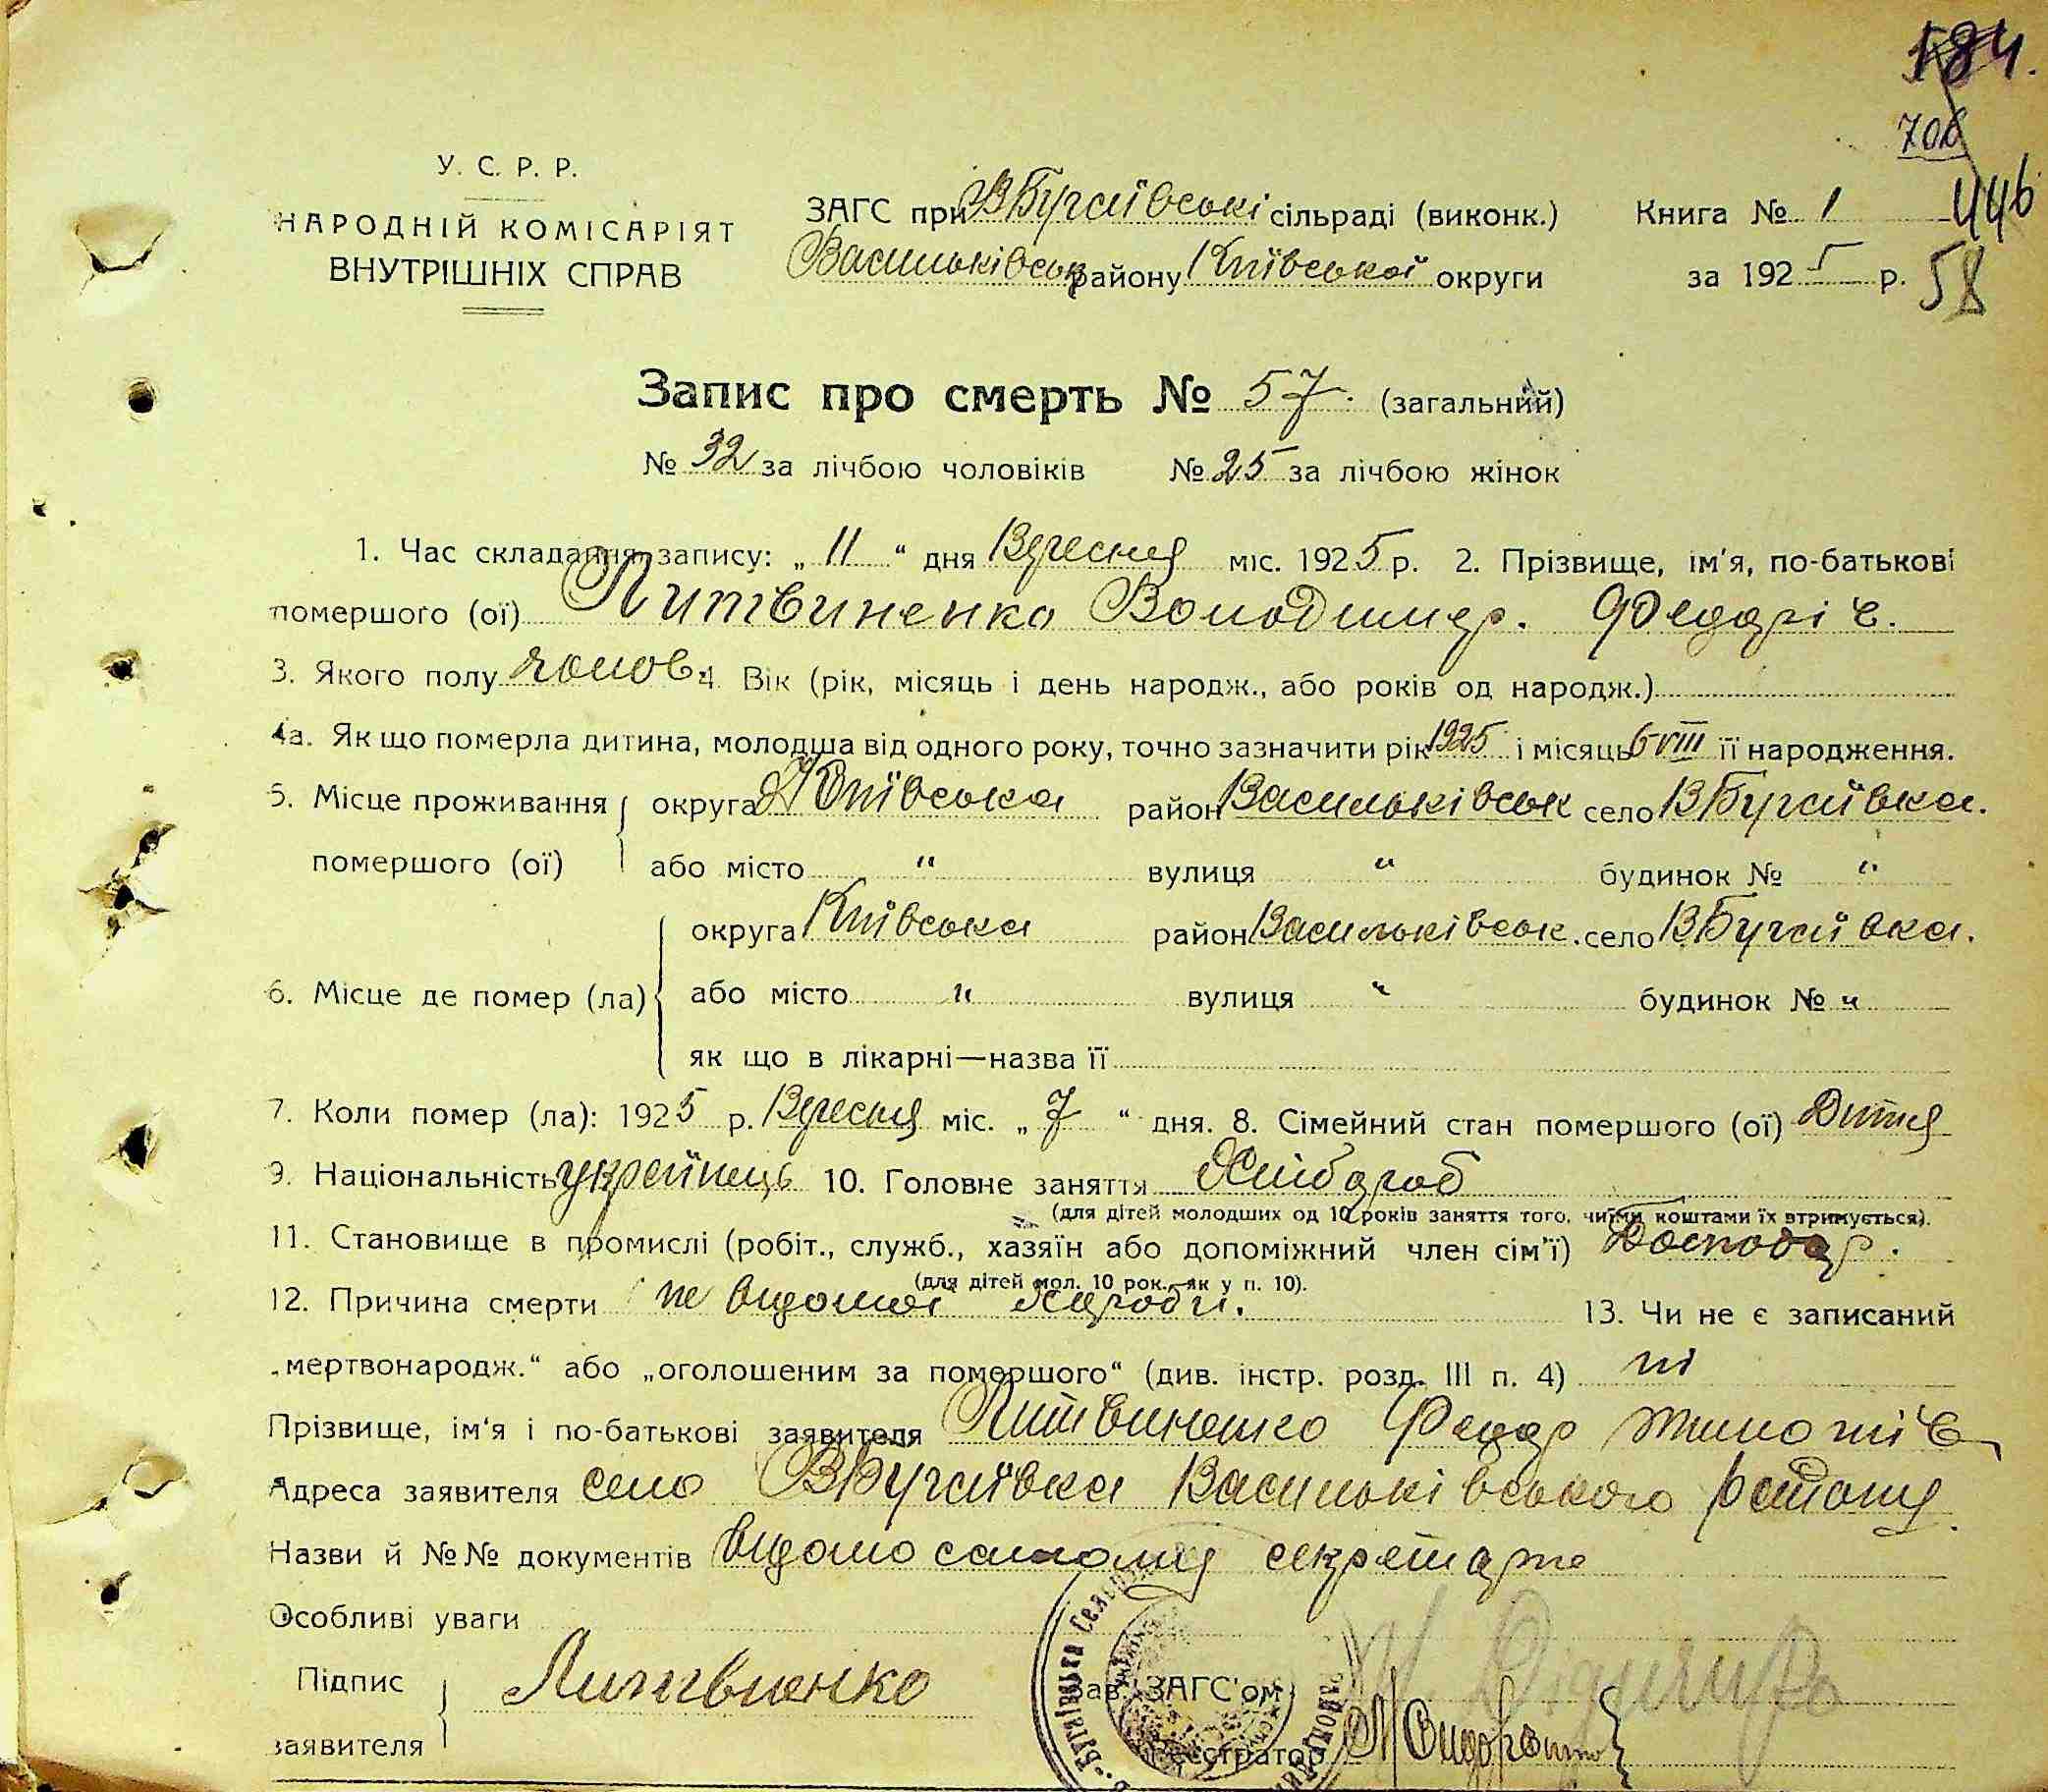 184.
706
У. С. Р. Р.
НАРОДНІЙ КОМІСАРІЯТ
ВНУТРІШНІХ СПРАВ
ЗАГС при ВБугаївські сільраді (виконк.)
Васильківськ району Київської округи
Книга № 1 446
за 1925 р. 58
Запис про смерть № 57. (загальний)
№ 32 за лічбою чоловіків № 25 за лічбою жінок
1. Час складання запису: „ 11 “ дня Вересня міс. 1925 р. 2. Прізвище, ім'я, по-батькові
помершого (ої) Литвиненко Володимир. Федорів.
3. Якого полу чолов 4. Вік (рік, місяць і день народж., або років од народж.)
4а. Як що померла дитина, молодша від одного року, точно зазначити рік 1925 і місяць 6 VIII її народження.
5. Місце проживання помершого (ої) округа Київська район Васильківськ село ВБугаївка.
або місто " вулиця " будинок № "
6. Місце де помер (ла) округа Київська район Васильківськ. село ВБугаївка.
або місто " вулиця " будинок № "
як що в лікарні—назва її
7. Коли помер (ла): 1925 р. Вересня міс. „ 7 “ дня. 8. Сімейний стан помершого (ої) Дитя
9. Національність українець 10. Головне заняття Хлібороб
(для дітей молодших од 10 років заняття того, чиїми коштами їх втримується).
11. Становище в промислі (робіт., служб., хазяїн або допоміжний член сім'ї) Господар.
(для дітей мол. 10 рок. як у п. 10).
12. Причина смерти не відомої хороби. 13. Чи не є записаний
„мертвонародж.“ або „оголошеним за помершого“ (див. інстр. розд. III п. 4) ні
Прізвище, ім'я і по-батькові заявителя Литвиненко Федор
Адреса заявителя село ВБугаївка Васильківського району.
Назви й №№ документів відомо самому секретарю
Особливі уваги
Підпис заявителя Литвиненко
Зав. ЗАГС'ом
Реєстратор